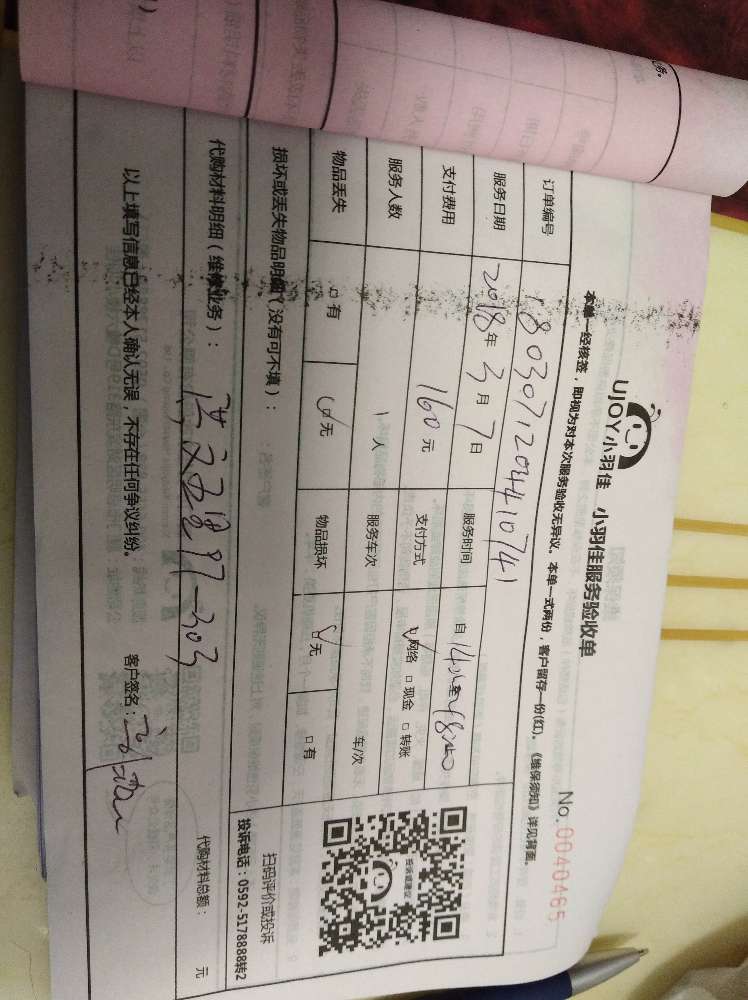 UJOY小羽佳 小羽佳服务验收单
No.0040465
本单一经核签,即视为对本次服务验收无异议。本单一式两份,客户留存一份(红)。《维保须知》详见背面。
订单编号 18030712044410741
服务日期 2018年3月7日 服务时间 自14:00至18:00
支付费用 160元 支付方式 ☑网络 □现金 □转账
服务人数 1人 服务车次 车/次
物品丢失 □有 ☑无 物品损坏 ☑无 □有
损坏或丢失物品明细(没有可不填):
投诉建议
扫码评价或投诉
投诉电话:0592-5178888转2
代购材料明细(维修业务): 97-303
代购材料总额: 元
以上填写信息已经本人确认无误,不存在任何争议纠纷。 客户签名: